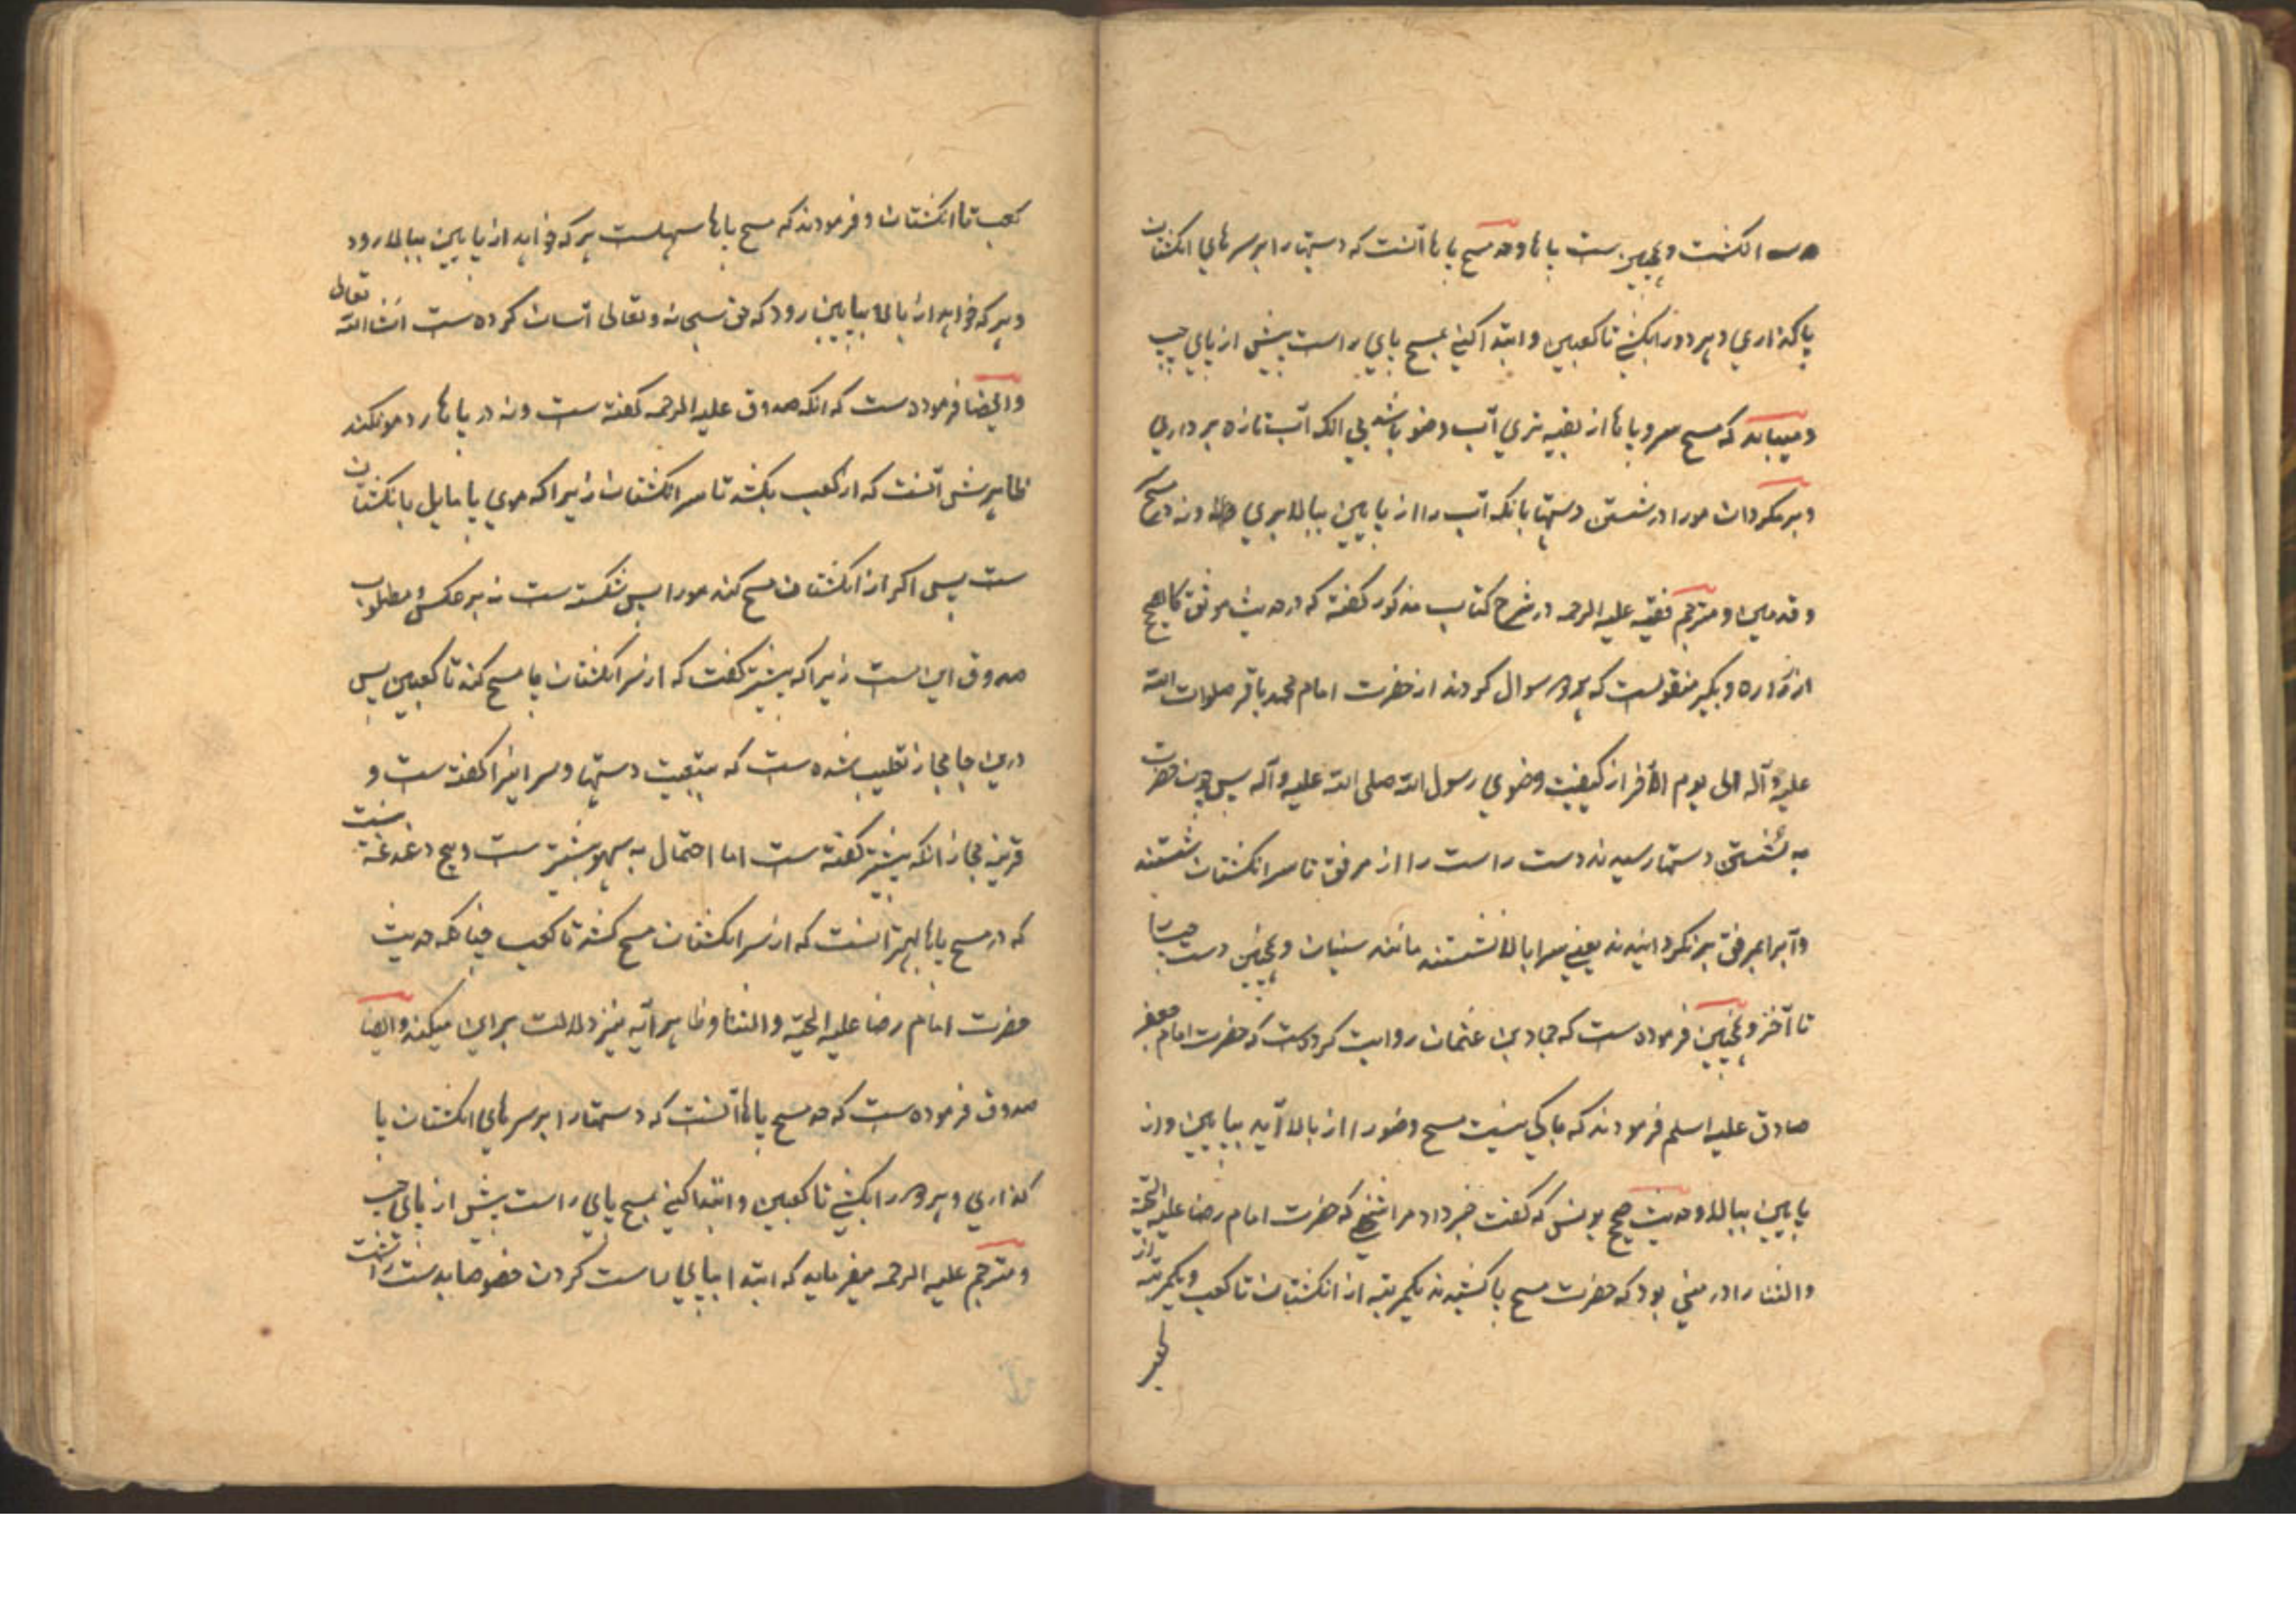 سه انگشت و همچنین ست پاها و حد مسح پاها آنست که دستها را بر سرهای انگشتان
پا گذاری و هر دو را بکشی تا کعبین و ابتدا کنی بمسح پای راست پیش از پای چپ
و میباید که مسح سر و پاها از بقیه تری آب وضو باشد بی انکه آب تازه برداری
و برمگردان مو را در شستن دستها بانکه آب را از پایین ببالا بری و نه در مسح
و قدمین و مترجم فقیه علیه الرحمه در شرح کتاب مذکور گفته که در حدیث موثق کالصحیح
از زراره و بکیر منقولست که هر دو سوال کردند از حضرت امام محمد باقر صلوات الله
علیه و آله الی یوم الآخر از کیفیت وضوی رسول الله صلی الله علیه و آله پس چون حضرت
به شستن دستها رسیدند دست راست را از مرفق تا سر انگشتان شستند
و آب را بمرفق برنگردانیدند یعنی سرابالا نشستند مانند سنیان و همچنین دست چپ را
تا آخر و همچنین فرموده ست که حماد بن عثمان روایت کرده ست که حضرت امام جعفر
صادق علیه اسلم فرمودند که باکی نیست مسح وضو را از بالا آید بپایین و از
پایین ببالا و حدیث صحیح یونس که گفت خبر داد مرا شخصی که حضرت امام رضا علیه التحیة
والثنا را در منی بود که حضرت مسح پا کشیدند یکمرتبه از انگشتان تا کعب و یکمرتبه از
کعب تا انگشتان و فرمودند که مسح پاها سهلست هر که خواهد از پایین ببالا رود
و هر که خواهد از بالا بپایین رود که حق سبحانه و تعالی آسان کرده ست انشاالله تعالی
و ایضا فرموده ست که انکه صدوق علیه الرحمه گفته ست و نه در پاها رد مو نکند
ظاهرش آنست که از کعب بکشد تا سر انگشتان زیرا که موی پا مایل بانگشتان
ست پس اگر از انگشتان مسح کند مو را پس شکسته ست نه برعکس و مطلوب
صدوق این است زیرا که پیشتر گفت که از سر انگشتان پا مسح کند تا کعبین پس
درین جا مجاز تغلیب شده ست که بتبعیت دستها و سر اینرا گفته ست و
قرینه مجاز انکه پیشتر گفته ست اما احتمال به سهو بیشتر ست و هیچ دغدغه نیست
که در مسح پاها بهتر آنست که از سر انگشتان مسح کشد تا کعب چنانکه حدیث
حضرت امام رضا علیه التحیة والثنا و ظاهر آیه نیز دلالت برین میکند و ایضا
صدوق فرموده ست که حد مسح پاها آنست که دستها را بر سرهای انگشتان پا
گذاری و هر دو را بکشی تا کعبین و ابتدا کنی بمسح پای راست پیش از پای چپ
و مترجم علیه الرحمه میفرماید که ابتدا بپای راست کردن خصوصا بدست راست